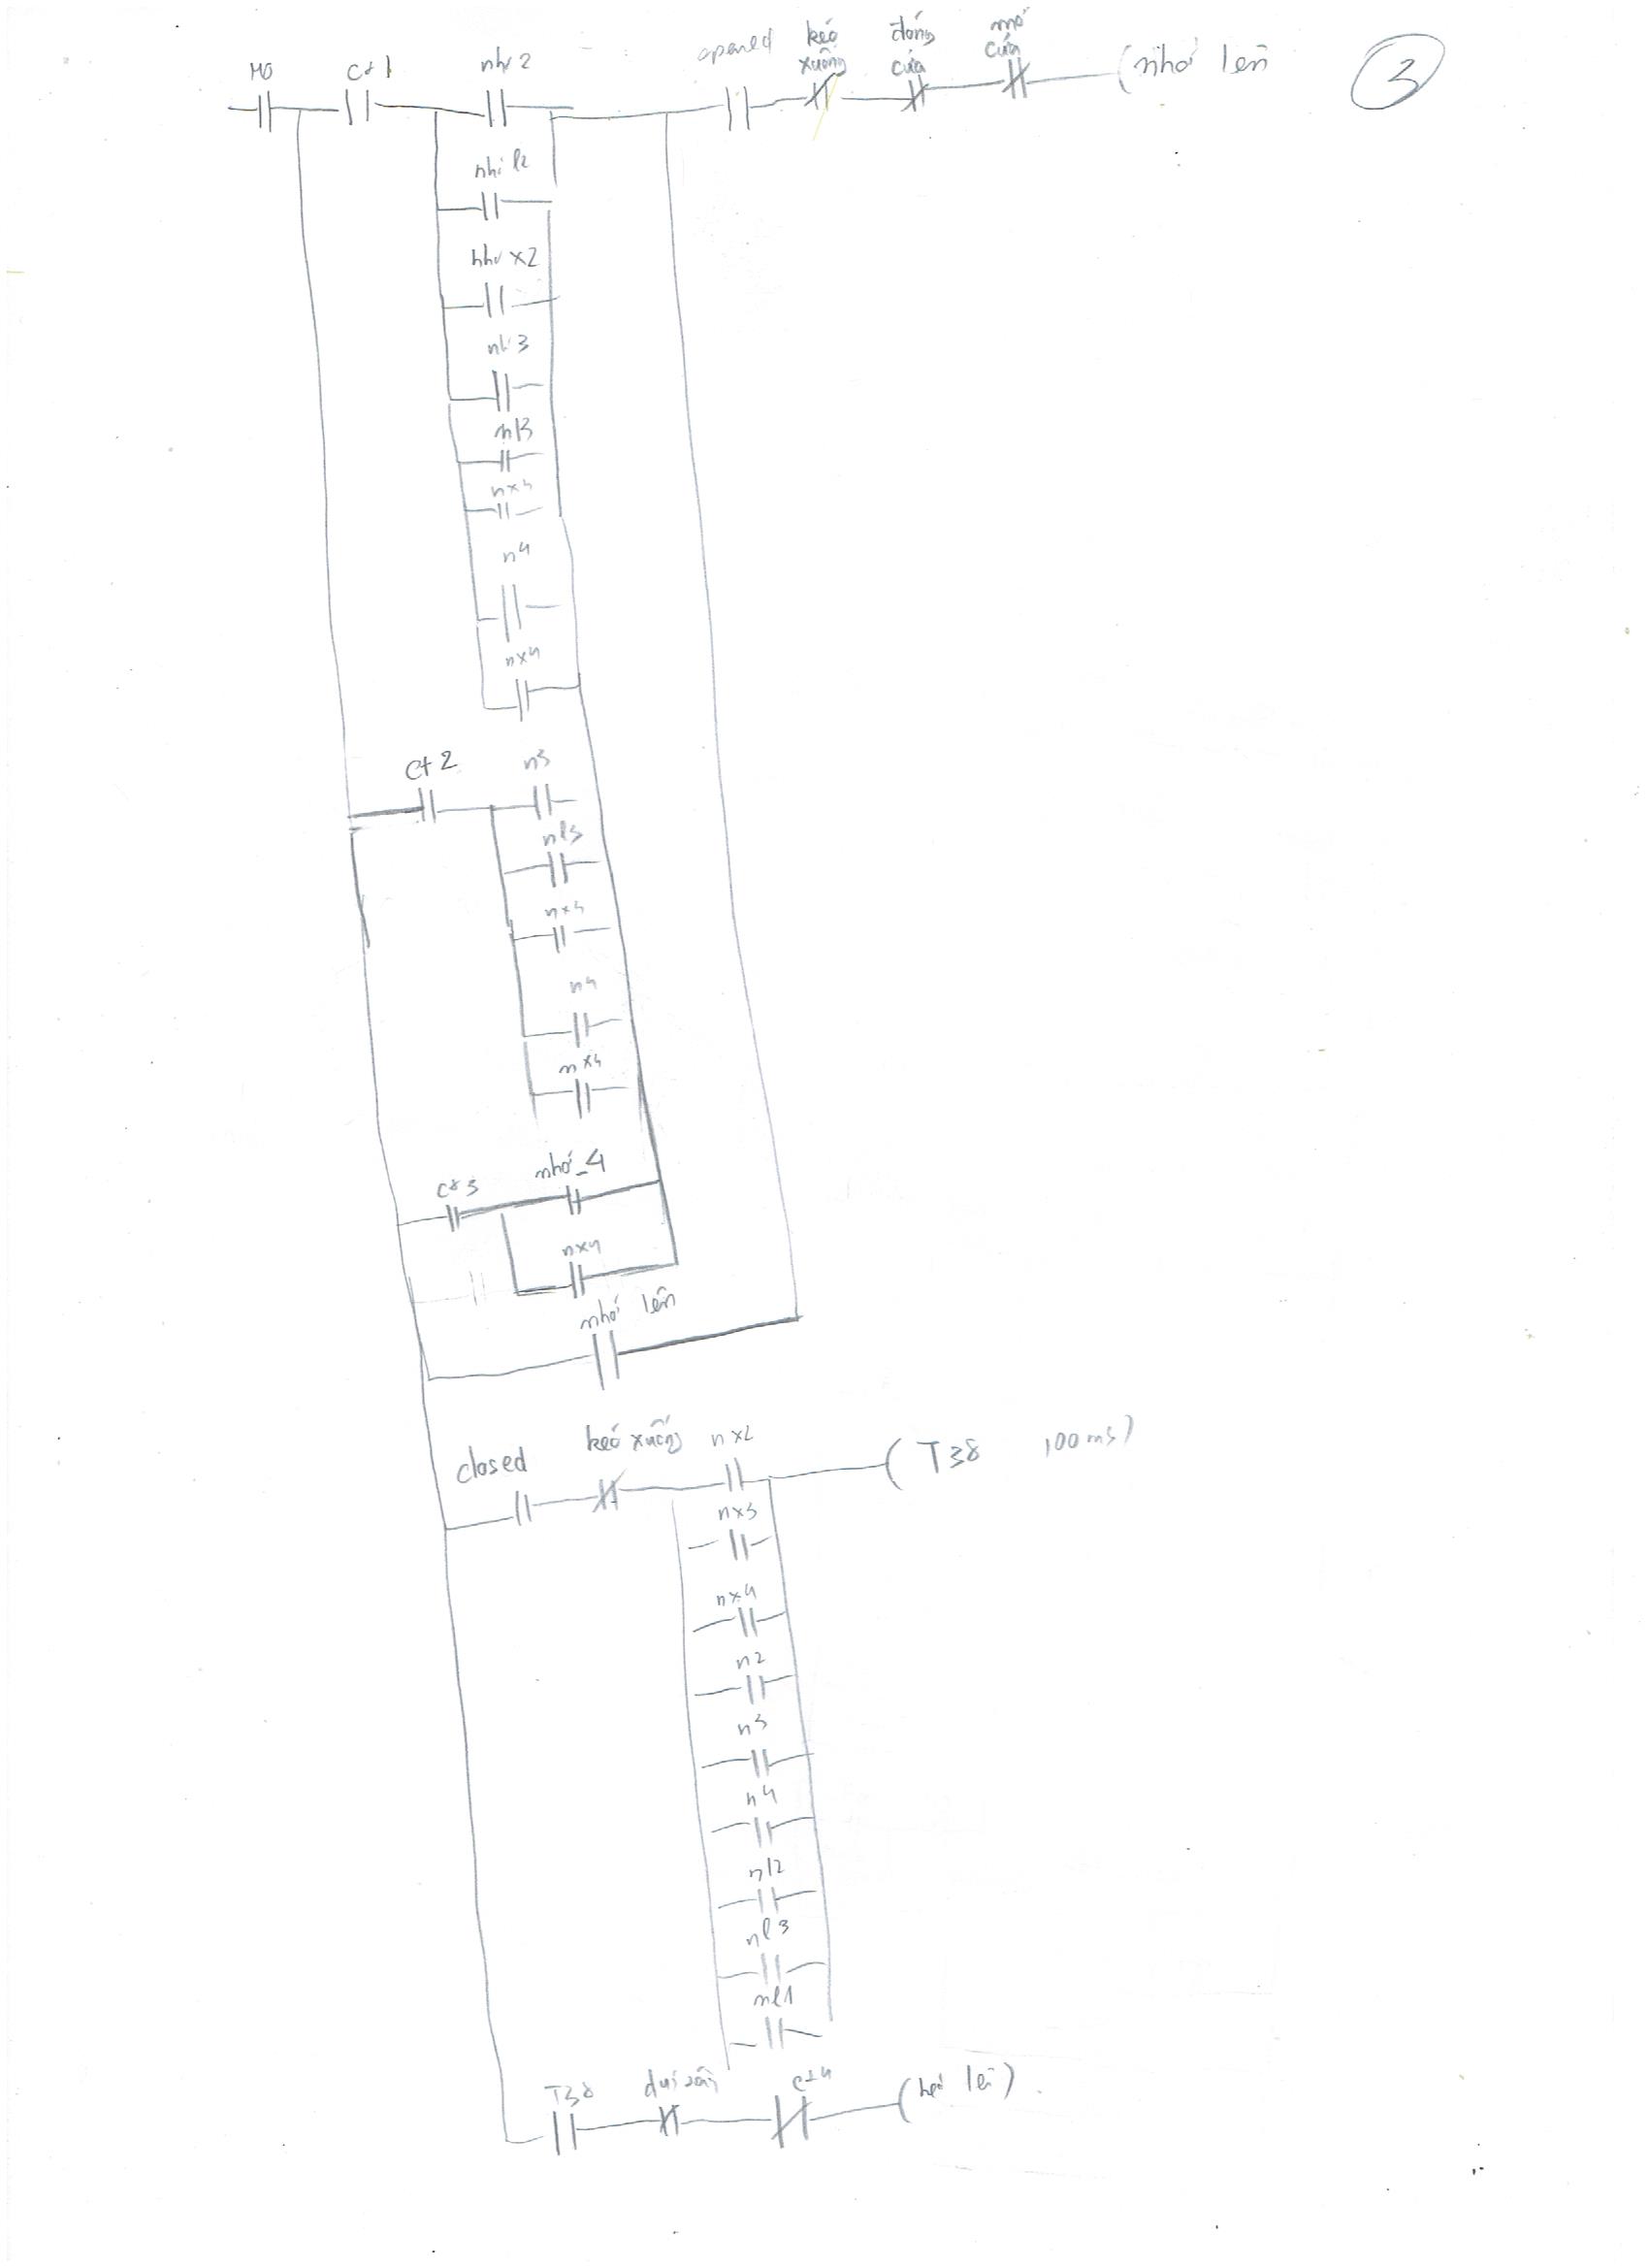 M0 ct1 nhớ 2 opened kéo xuống đóng cửa mở cửa (nhớ lên 3
nhớ l2
nhớ x2
nh 3
nl3
nx3
n4
nx4
ct2 n3
nl3
nx3
n4
nx4
ct3 nhớ_4
nx4
nhớ lên
closed kéo xuống nx2 (T38 100ms)
nx3
nx4
n2
n3
n4
nl2
nl3
nl1
T38 ct4 (kéo lên)